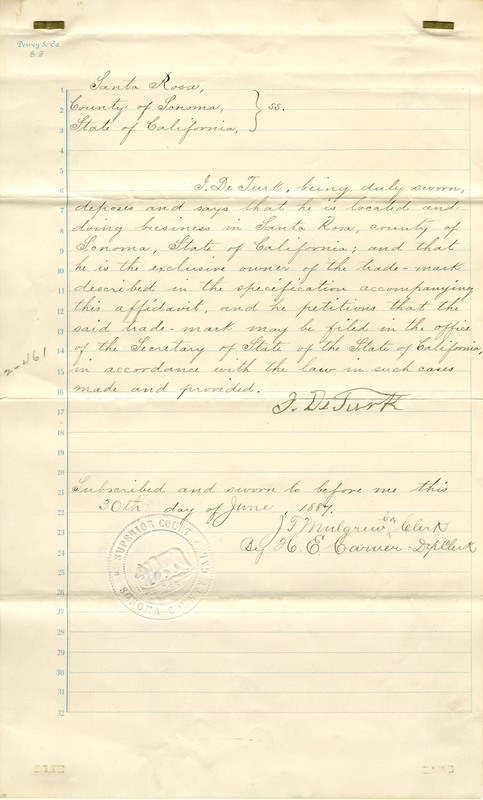 Dewey & Co.
S. F.
1 Santa Rosa,
2 County of Sonoma, } ss.
3 State of California.
4
5
6 I. De Turk, being duly sworn,
7 deposes and says that he is located and
8 doing business in Santa Rosa, county of
9 Sonoma, State of California; and that
10 he is the exclusive owner of the trade-mark
11 described in the specification accompanying
12 this affidavit, and he petitions that the
13 said trade-mark may be filed in the office
14 of the Secretary of State of the State of California,
15 in accordance with the law in such cases
16 made and provided.
17 I. De Turk
2-461
18
19
20
21 Subscribed and sworn to before me this
22 30th day of June, 1887.
23 Mulgrew Co Clerk
24 By H. E. Carver - Dep Clerk
25
26
27
28
29
30
31
32
SUPERIOR COURT CAL
SONOMA COUNTY